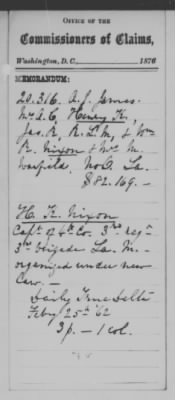 OFFICE OF THE
Commissioners of Claims,
Washington, D.C., 1876
MEMORANDUM:
20.316. A. J. James.
Mrs. A. C., Henry K.,
Jas. R., R. L. M., & Wm
R. Nixon & Mrs. M.
Warfield, N.O. La.
$82.169. —
H. K. Nixon
Capt. of 4th Co. 3rd regt
3rd brigade La. M. —
organized under new
Law. —
Daily True Delta
Feby 25th '62
3p. — 1 col.